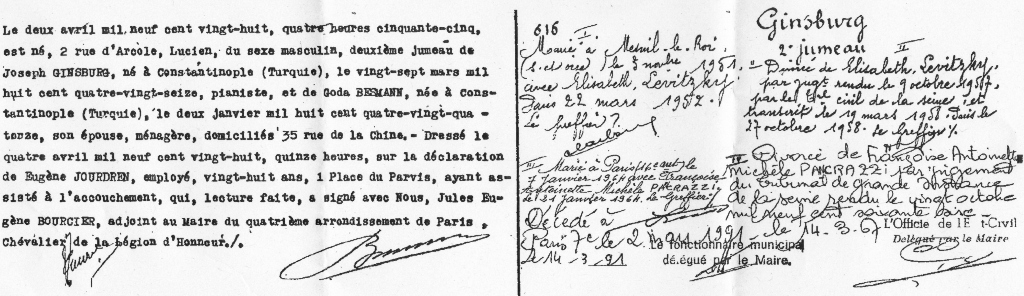 Le deux avril mil neuf cent vingt-huit, quatre heures cinquante-cinq,
est né, 2 rue d'Arcole, Lucien, du sexe masculin, deuxième jumeau de
Joseph GINSBURG, né à Constantinople (Turquie), le vingt-sept mars mil
huit cent quatre-vingt-seize, pianiste, et de Goda BESMANN, née à Cons-
tantinople (Turquie), le deux janvier mil huit cent quatre-vingt-qua -
torze, son épouse, ménagère, domiciliés 35 rue de la Chine.- Dressé le
quatre avril mil neuf cent vingt-huit, quinze heures, sur la déclaration
de Eugène JOURDREN, employé, vingt-huit ans, 1 Place du Parvis, ayant as-
sisté à l'accouchement, qui, lecture faite, a signé avec Nous, Jules Eu-
gène BOURCIER, adjoint au Maire du quatrième arrondissement de Paris
Chevalier de la Légion d'Honneur./.
616
I
Marié à Mesnil-le-Roi
(S. et Oise) le 3 1951
avec Elisabeth, Levitzky.
Paris 22 mars 1952.
Le greffier
III Marié à Paris le
7 janvier 1964 avec Françoise
Antoinette Michèle PANCRAZZI
le 31 janvier 1964. Le Greffier
Décédé à
Paris 7e le 2 Mars 1991
le 14-3-91
Le fonctionnaire municipal
délégué par le Maire.
Ginsburg
2e jumeau
II
Divorcé de Elisabeth, Levitzky,
par jugt rendu le 9 octobre 1957
par le tbal civil de la Seine et
transcrit le 19 mars 1958. Paris le
27 octobre 1958. Le Greffier
IV Divorcé de Françoise Antoinette
Michèle PANCRAZZI par jugement
du tribunal de Grande Instance
de la Seine rendu le vingt octobre
mil neuf cent soixante six
le 14.3.67
L'Officie de l'E t-Civil
Délégué par le Maire